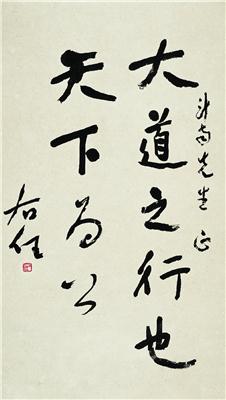 先生正
大道之行也
天下为公
右任